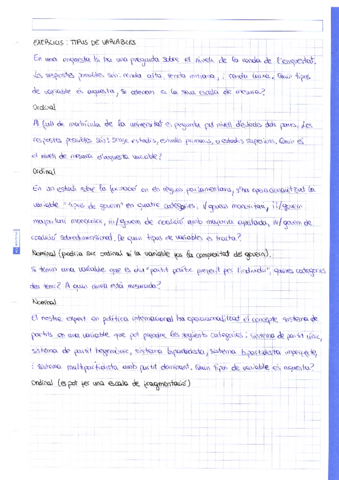 EXERCICIS: TIPUS DE VARIABLES
En una enquesta hi ha una pregunta sobre el nivell de la renda de l'enquestat.
Les respostes possibles són: renda alta, renda mitjana, i renda baixa. Quin tipus
de variable és aquesta, si atenem a la seva escala de mesura?
Ordinal
Al full de matrícula de la universitat es pregunta pel nivell d'estudis dels pares. Les
respostes possibles són: sense estudis, estudis primaris, o estudis superiors. Quin és
el nivell de mesura d'aquesta variable?
Ordinal
En un estudi sobre la formació en règim parlamentari, s'ha operacionalitzat la
variable "tipus de govern" en quatre categories: i/govern minoritari, ii/govern
majoritari monocolor, iii/govern de coalició amb majoria ajustada, iiii/govern de
coalició sobredimensional. De quin tipus de variables es tracta?
Nominal (podria ser ordinal si la variable fos la complexitat del govern)
Si tenim una variable que es diu "partit polític preferit per l'individu", quines categories
des tenir? A quin nivell està mesurada?
Nominal
El nostre expert en política internacional ha operacionalitzat el concepte sistema de
partits en una variable que pot prendre les següents categories: sistema de partit únic,
sistema de partit hegemònic, sistema bipartidista, sistema bipartidista imperfecte,
i sistema multipartidista amb partit dominant. Quin tipus de variable és aquesta?
Ordinal (es pot fer una escala de fragmentació)